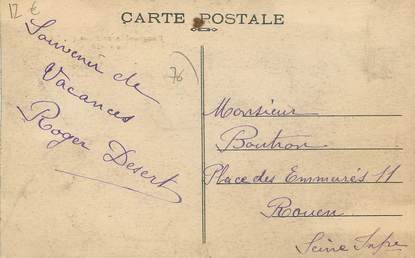 12 €
CARTE POSTALE
Souvenir de
Vacances
Roger Desert
76
Monsieur
Boutron
Place des Emmurés 11
Rouen
Seine Infre